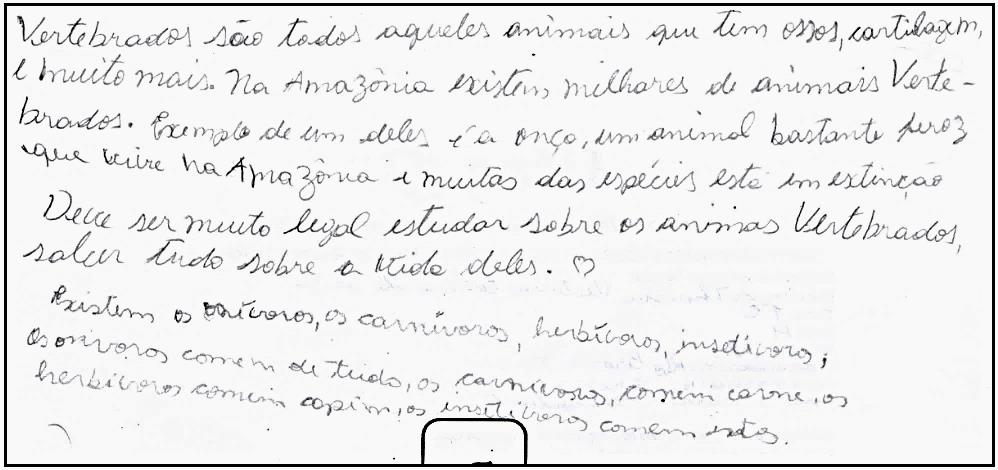 Vertebrados são todos aqueles animais que tem ossos, cartilagem,
e muito mais. Na Amazônia existem milhares de animais Verte-
brados. Exemplo de um deles é a onça, um animal bastante feroz
que vive na Amazônia e muitas das espécies está em extinção
Deve ser muito legal estudar sobre os animas Vertebrados,
saber tudo sobre a Vida deles. ♡
Existem os onívoros, os carnívoros, herbívoros, insetívoros;
Os onivoros comem de tudo, os carnívoros, comem carne, os
herbívoros comem capim, os insetívoros comem